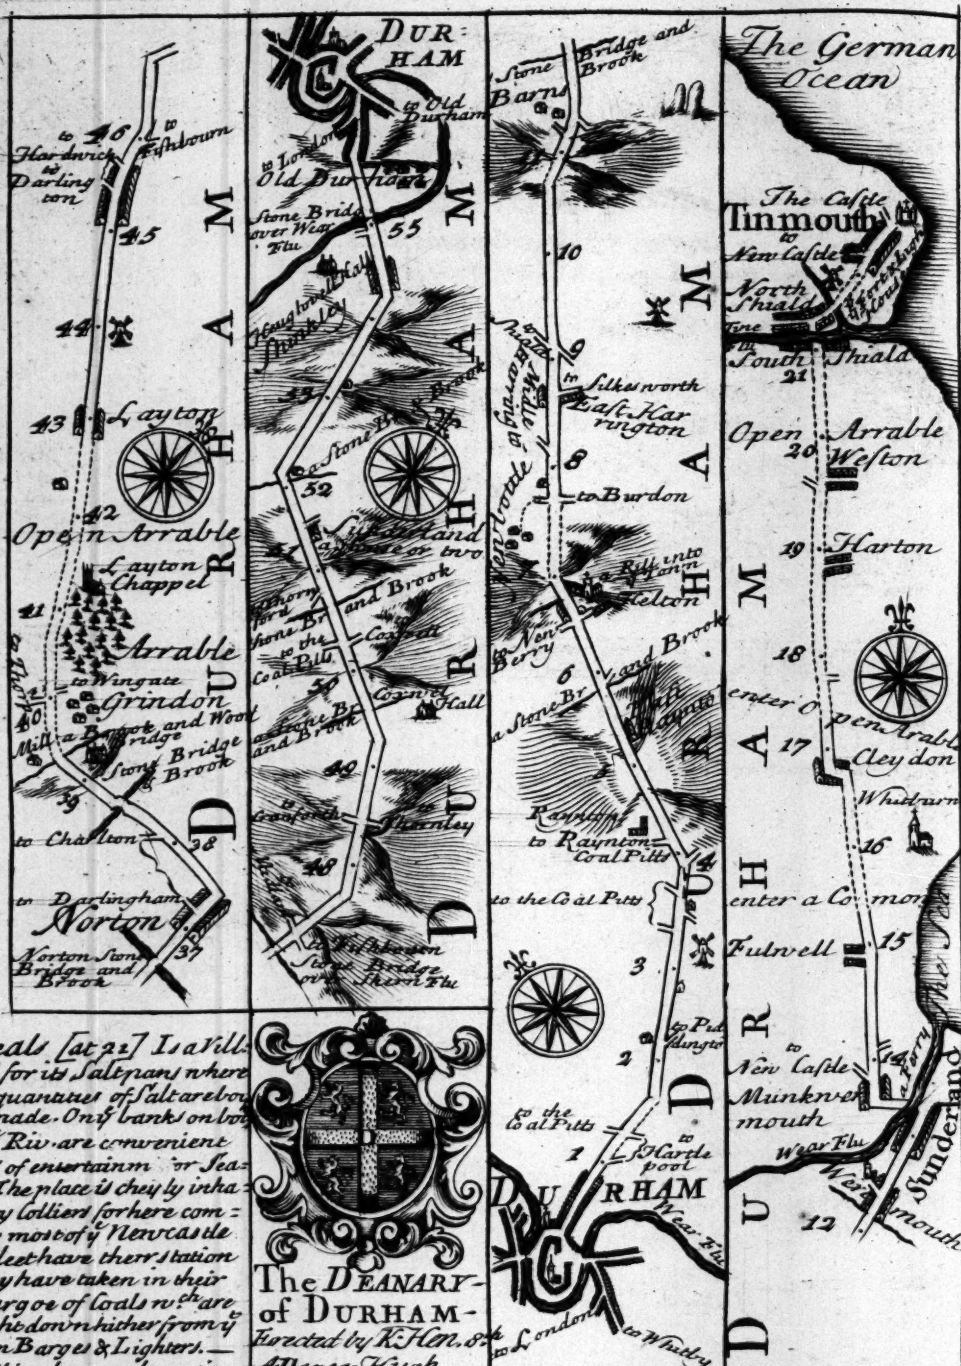 to 46 to
Hardwick Fishbourn
to
Darling
ton
45
44
43 Layton
42
Open Arrable
Layton
Chappel
41
Arrable
to Wingate
Grindon
40
Mill a Brook and Wood
Bridge
Stone Bridge
Brook
39
to Charlton 38
to Darlingham
Norton
37
Norton Stone
Bridge and
Brook
DURHAM
DUR:
HAM
to Old
Durham
to London
Old Durham
Stone Bridg
over Wear
Flu
55
Houghwell Hall
Shinkley
53
a Stone Br & Brook
52
Sunderland
a house or two
51
and Brook
to the
Coal Pitts
50
Coxwel
Hall
a Stone Br
and Brook
49
to
Thornley
48
to Fishbourn
Stone Bridge
over Skern Flu
DURHAM
Stone Bridge and
Brook
Barns
11
10
9
to
Silkesworth
East Har
rington
8
to Burdon
7
a Rill into
y Town
Helton
to New
Berry
6
a Stone Br and Brook
5
Raynton
to Raynton
Coal Pitts
4
to the Coal Pitts
3
to Pid
dington
2
to the
Coal Pitts
1 to
Hartle
pool
DURHAM
Wear Flu
to London
to Whitby
DURHAM
The German
Ocean
The Castle
Tinmouth
to
New Castle
North
Shiald
a Fort & Light
House
Tine
Flu
South Shiald
21
Open Arrable
20 Weston
19 Harton
18
enter Open Arable
17 Cleydon
Whitburn
16
enter a Common
15
Fulwell
The Sea
to
New Castle 14
a Ferry
Munkwer
mouth
Wear Flu
Sunderland
Were
mouth
12
DURHAM
eals [at 21] Is a Vill:
for its Salt pans where
quantities of Salt are bou
made. On y banks on bot
Riv. are convenient
of entertainm for Sea=
The place is cheifly inha=
y Colliers for here com=
most of y Newcastle
leet have their station
y have taken in their
argoe of Coals wch are
ht down hither from y
n Barges & Lighters.
The DEANARY
of DURHAM
Erected by K: Hen. 8th